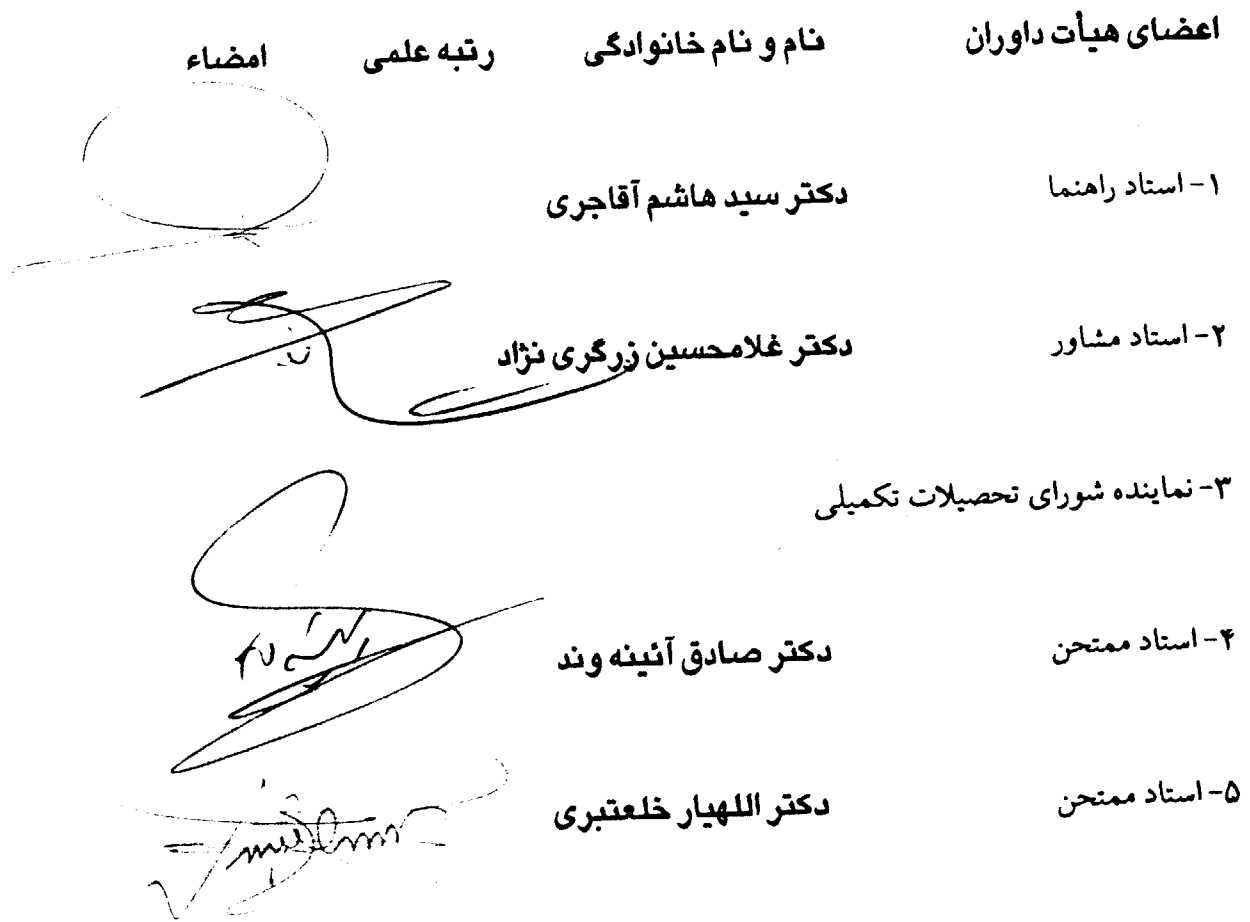 اعضای هیأت داوران نام و نام خانوادگی رتبه علمی امضاء
۱- استاد راهنما دکتر سید هاشم آقاجری
۲- استاد مشاور دکتر غلامحسین زرگری نژاد
۳- نماینده شورای تحصیلات تکمیلی
۴- استاد ممتحن دکتر صادق آئینه وند
۵- استاد ممتحن دکتر اللهیار خلعتبری